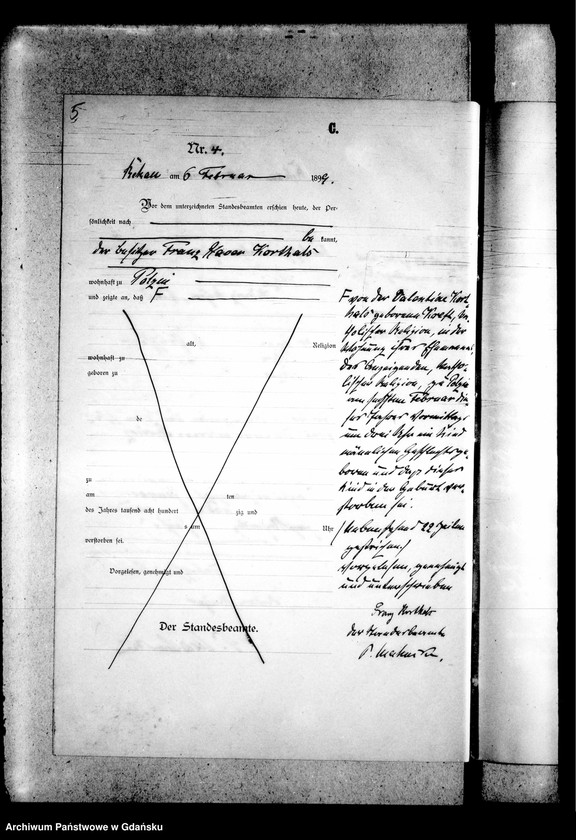 5
C.
Nr. 4.
Rekau am 6 Februar 1899.
Vor dem unterzeichneten Standesbeamten erschien heute, der Per-
sönlichkeit nach
be kannt,
der Besitzer Franz Xaver Korthals
wohnhaft zu Polzin
und zeigte an, daß F
alt, Religion
wohnhaft zu
geboren zu
de
zu
am ten
des Jahres tausend acht hundert zig und
um Uhr
verstorben sei.
Vorgelesen, genehmigt und
Der Standesbeamte.
F von der Valentine Kort
hals geborenen, ka
tholischer Religion, in der
Wohnung ihres Ehemannes
des Anzeigenden, katho-
lischer Religion, zu Polzin
am sechsten Februar die
ses Jahres Vormittags
um drei Uhr ein Kind
männlichen Geschlechts ge
boren und daß dieses
Kind in der Geburt ver
storben sei.
Nebenstehend 22 Zeilen
gestrichen
Vorgelesen, genehmigt
und unterschrieben
Franz Korthals
der Standesbeamte
P.
Archiwum Państwowe w Gdańsku